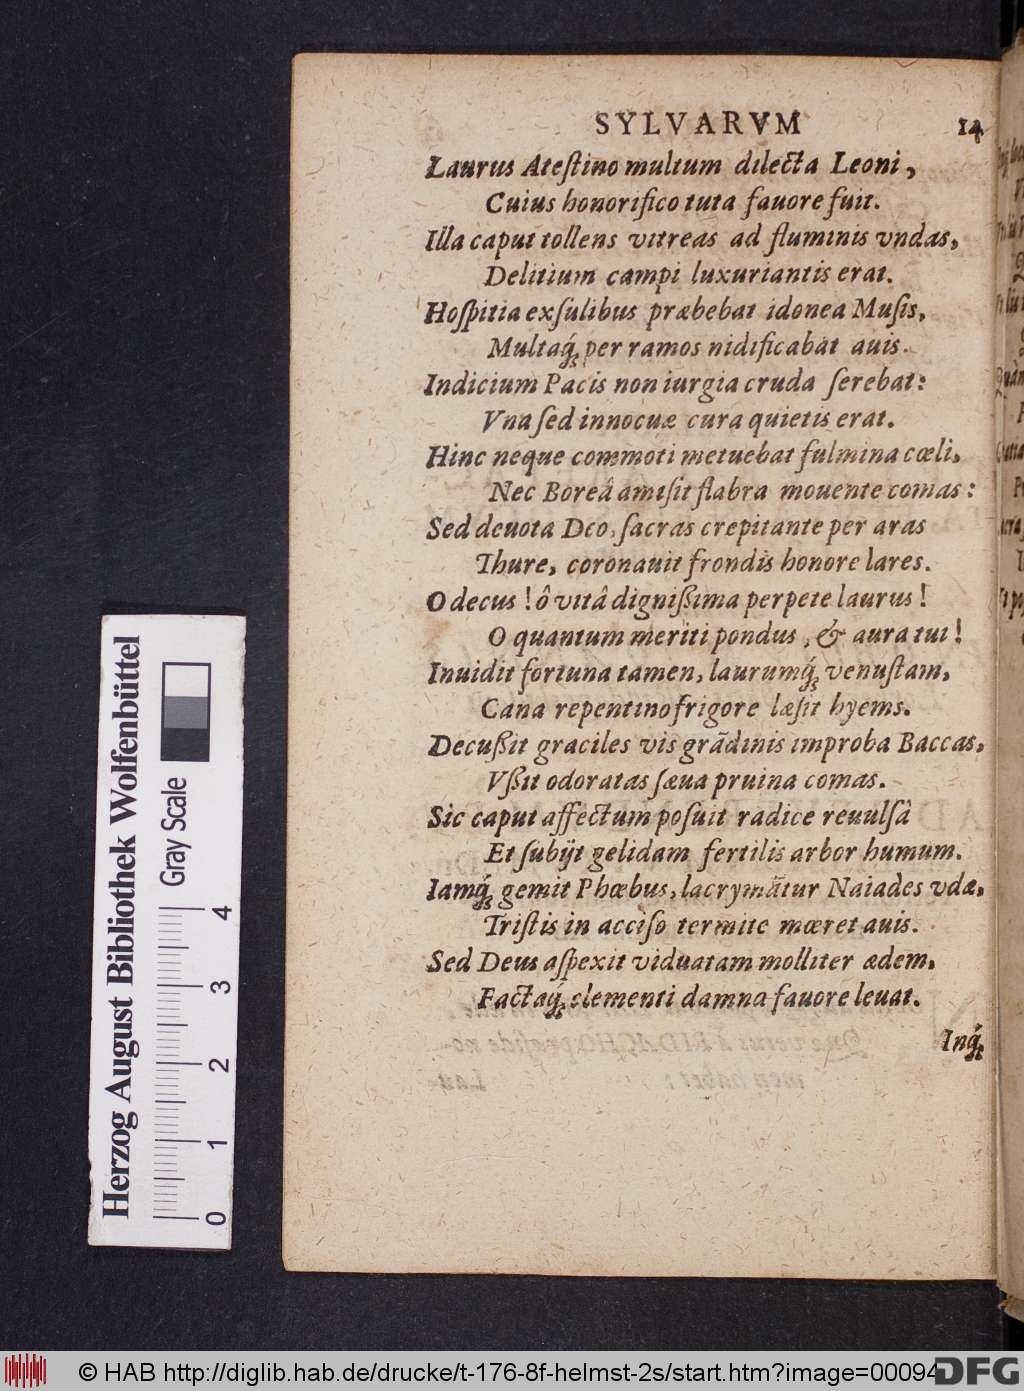 SYLVARVM 14
Laurus Atestino multum dilecta Leoni,
Cuius honorifico tuta fauore fuit.
Illa caput tollens vitreas ad fluminis vndas,
Delitium campi luxuriantis erat.
Hoſpitia exſulibus præbebat idonea Muſis,
Multaq́; per ramos nidificabat auis.
Indicium Pacis non iurgia cruda ſerebat:
Vna ſed innocuæ cura quietis erat.
Hinc neque commoti metuebat fulmina cœli,
Nec Boreâ amiſit flabra mouente comas:
Sed deuota Deo, ſacras crepitante per aras
Thure, coronauit frondis honore lares.
O decus! ô vitâ digniſſima perpete laurus!
O quantum meriti pondus, & aura tui!
Inuidit fortuna tamen, laurumq́; venuſtam,
Cana repentino frigore læſit hyems.
Decußit graciles vis grādinis improba Baccas,
Vßit odoratas ſæua pruina comas.
Sic caput affectum poſuit radice reuulſâ
Et ſubijt gelidam fertilis arbor humum.
Iamq́; gemit Phœbus, lacrymātur Naiades vdæ,
Triſtis in acciſo termite mœret auis.
Sed Deus aſpexit viduatam molliter ædem,
Factaq́; clementi damna fauore leuat.
Inq́;
Herzog August Bibliothek Wolfenbüttel
Gray Scale
0 1 2 3 4
© HAB http://diglib.hab.de/drucke/t-176-8f-helmst-2s/start.htm?image=00094
DFG